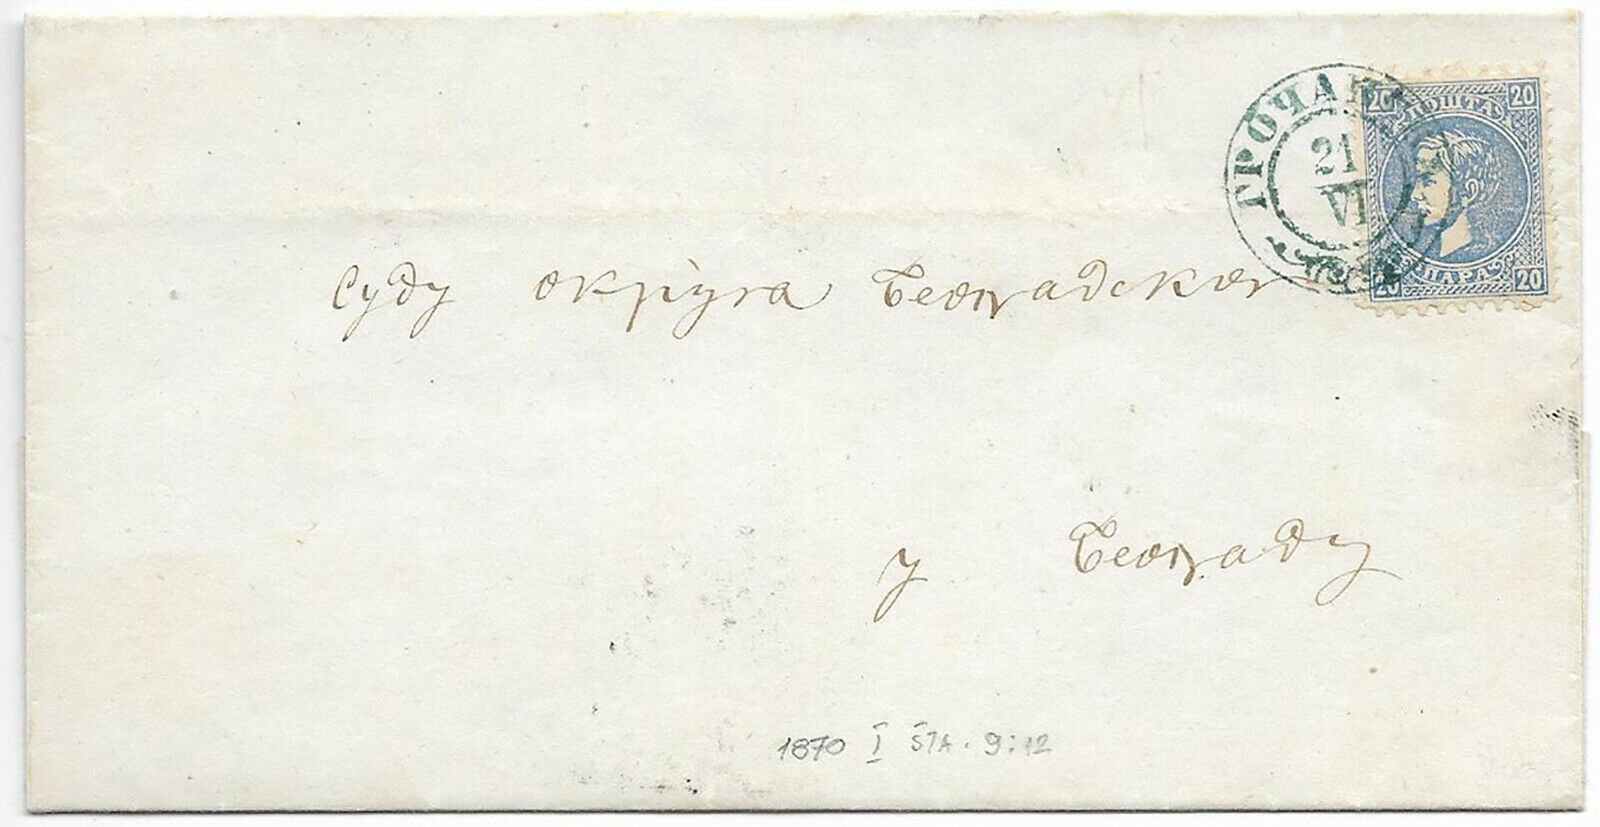 ГРОЧАН
21
VI
20 20
ПОШТА
ПАРА
20 20
Суду округа Београдског
у Београду
1870 I ŠTA. 9:12